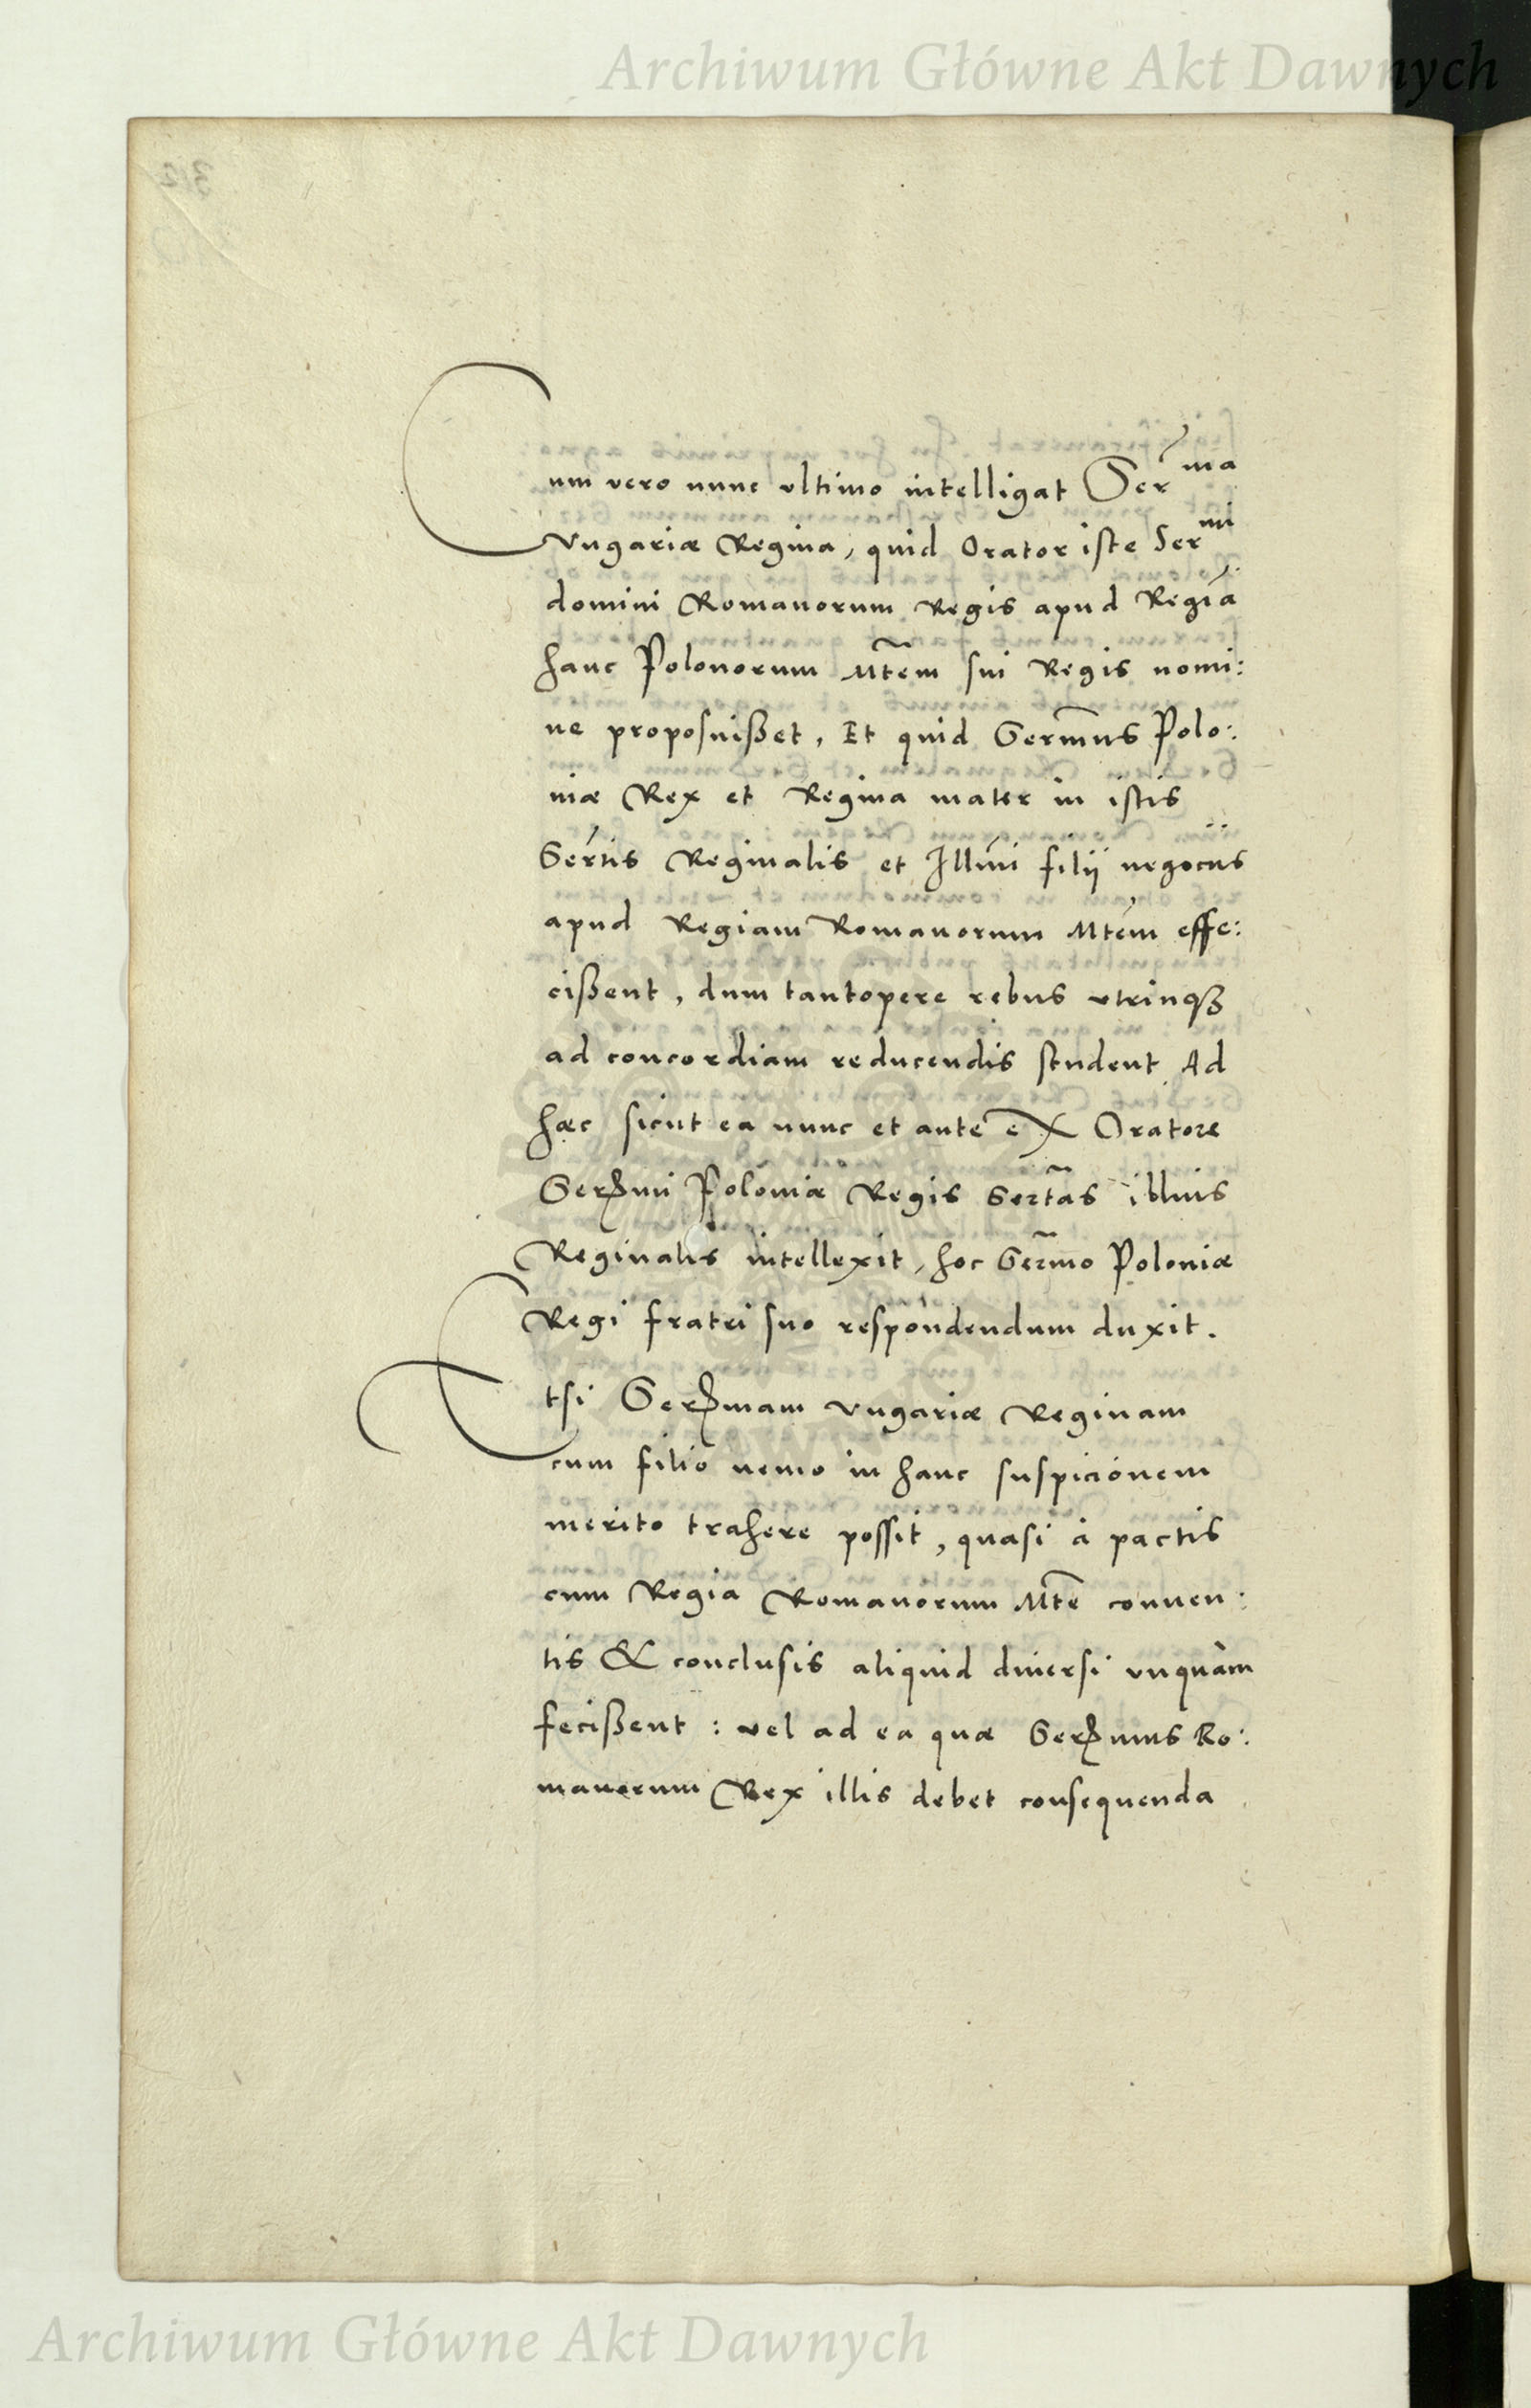 Archiwum Główne Akt Dawnych
Cum vero nunc ultimo intelligat Ser^ma
Vngariæ Regina, quid Orator iste Ser^mi
domini Romanorum Regis apud Regiā
hanc Polonorum Mtēm sui Regis nomi:
ne proposuißet, Et quid Serm̄us Polo:
niæ Rex et Regina mater in istis
Sertis Reginalis et Illmi filij negociis
apud Regiam Romanorum Mtēm effe:
cißent, dum tantopere rebus vtrinqꝫ
ad concordiam reducendis student. Ad
hæc sicut ea nunc et ante ex Oratore
Serßmi Poloniæ Regis Sertas illius
Reginalis intellexit, hoc Serm̄o Poloniæ
Regi fratri suo respondendum duxit.
Etsi Serßmam Vngariæ Reginam
cum filio nemo in hanc suspicionem
merito trahere possit, quasi à pactis
cum Regia Romanorum Mtē conuen:
tis & conclusis aliquid diuersi vnquàm
fecißent: vel ad ea quæ Serßmus Ro:
manorum Rex illis debet consequenda
Archiwum Główne Akt Dawnych